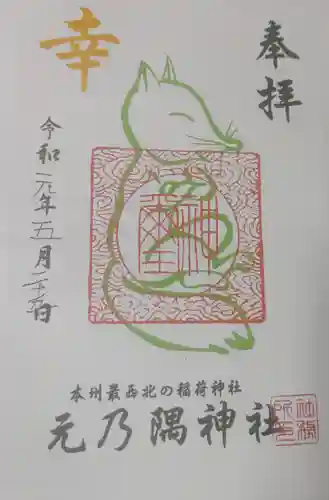 奉拝
幸
令和元年五月二十六日
本州最西北の稲荷神社
元乃隅神社